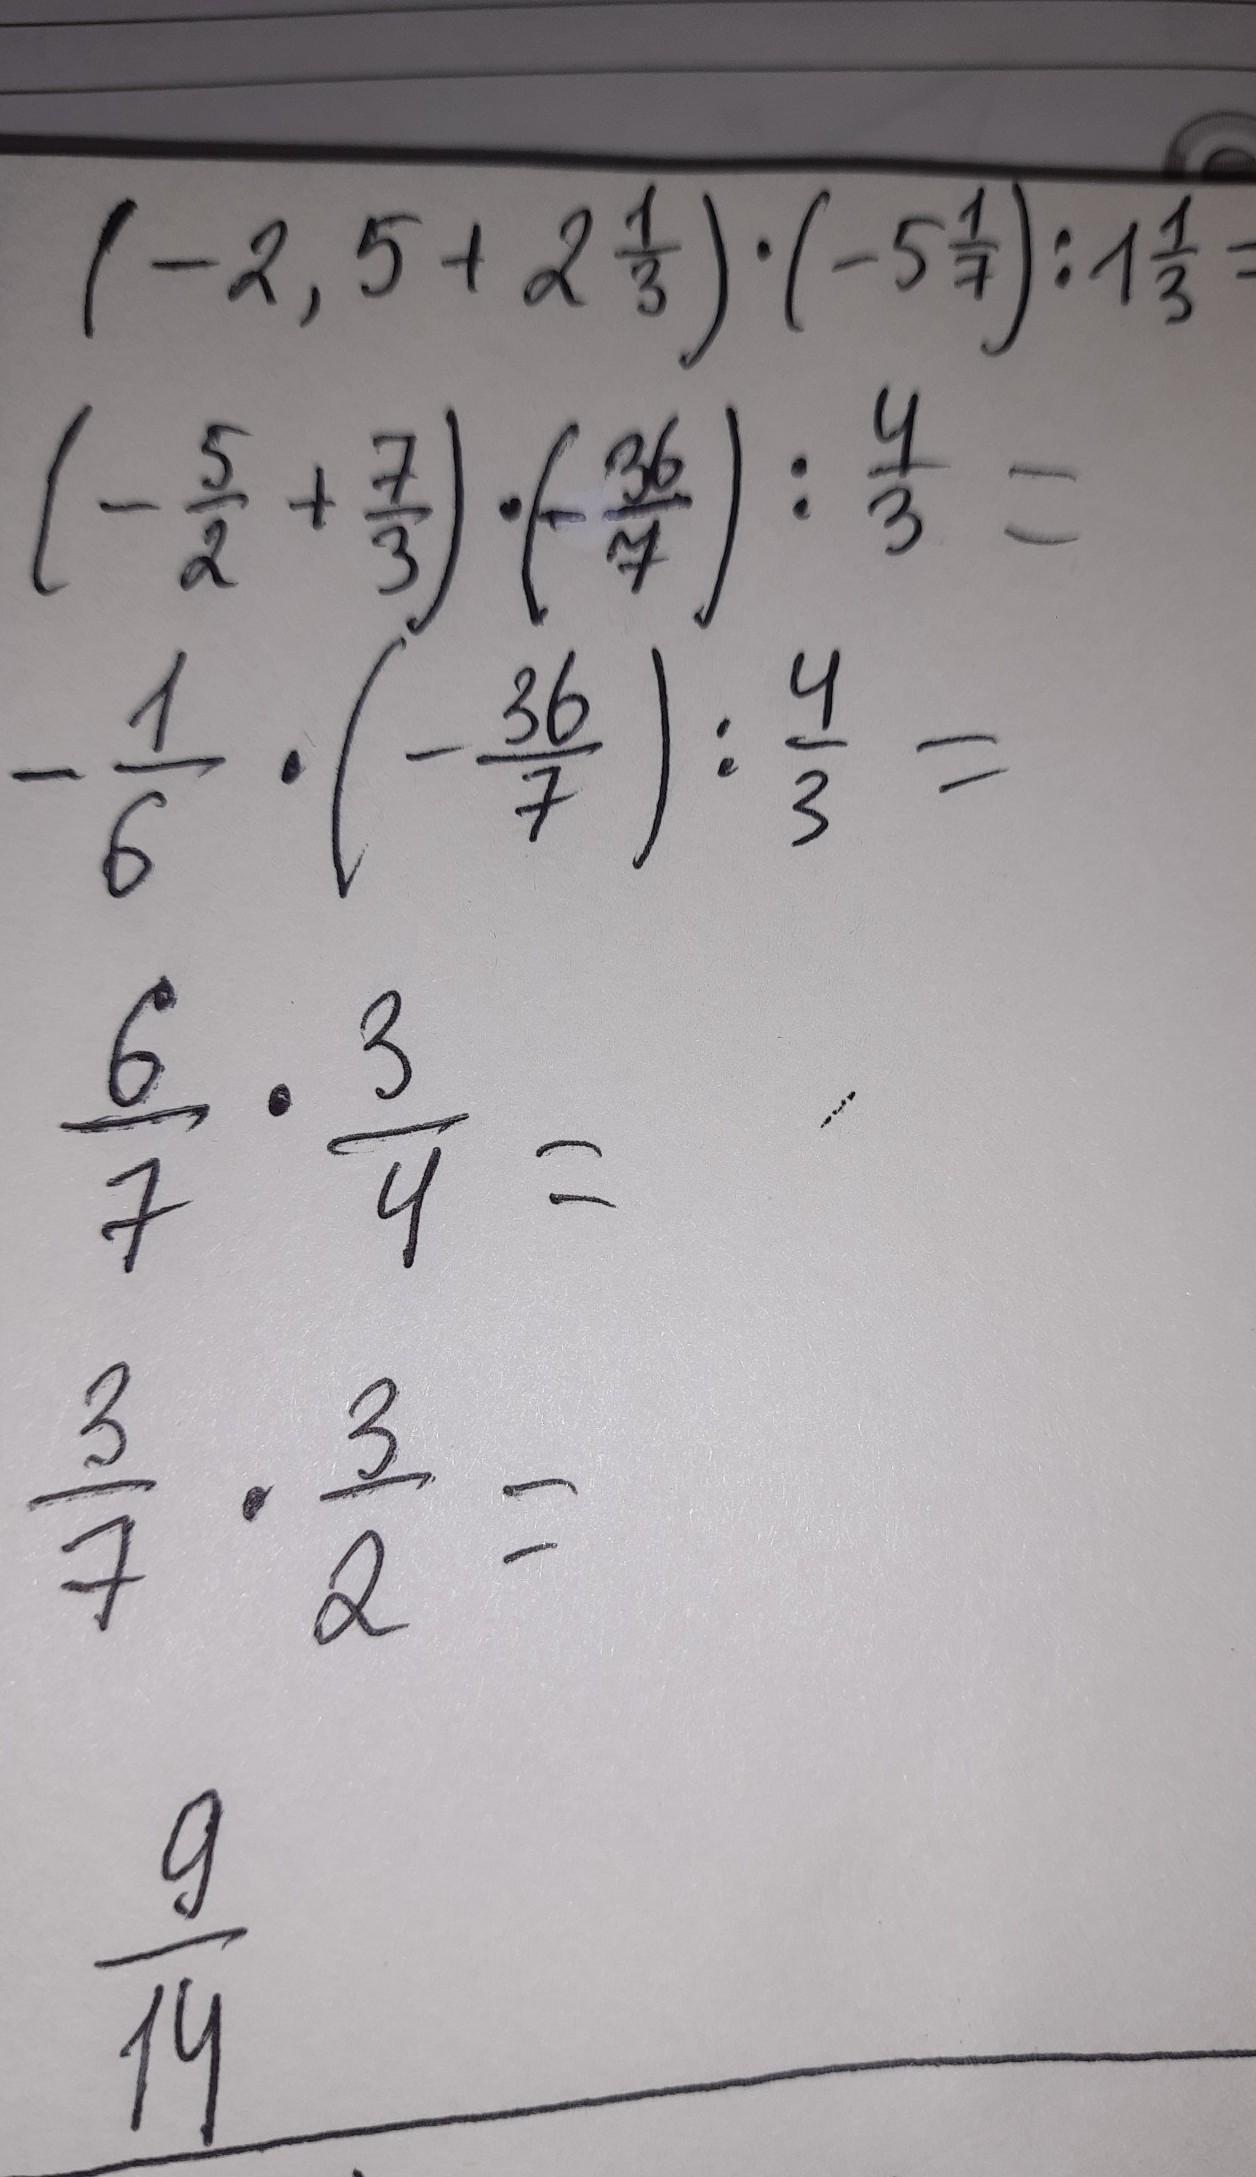 (-2,5+2 1/3)·(-5 1/7):1 1/3=
(-5/2+7/3)·(-36/7):4/3=
-1/6·(-36/7):4/3=
6/7·3/4=
3/7·3/2=
9/14